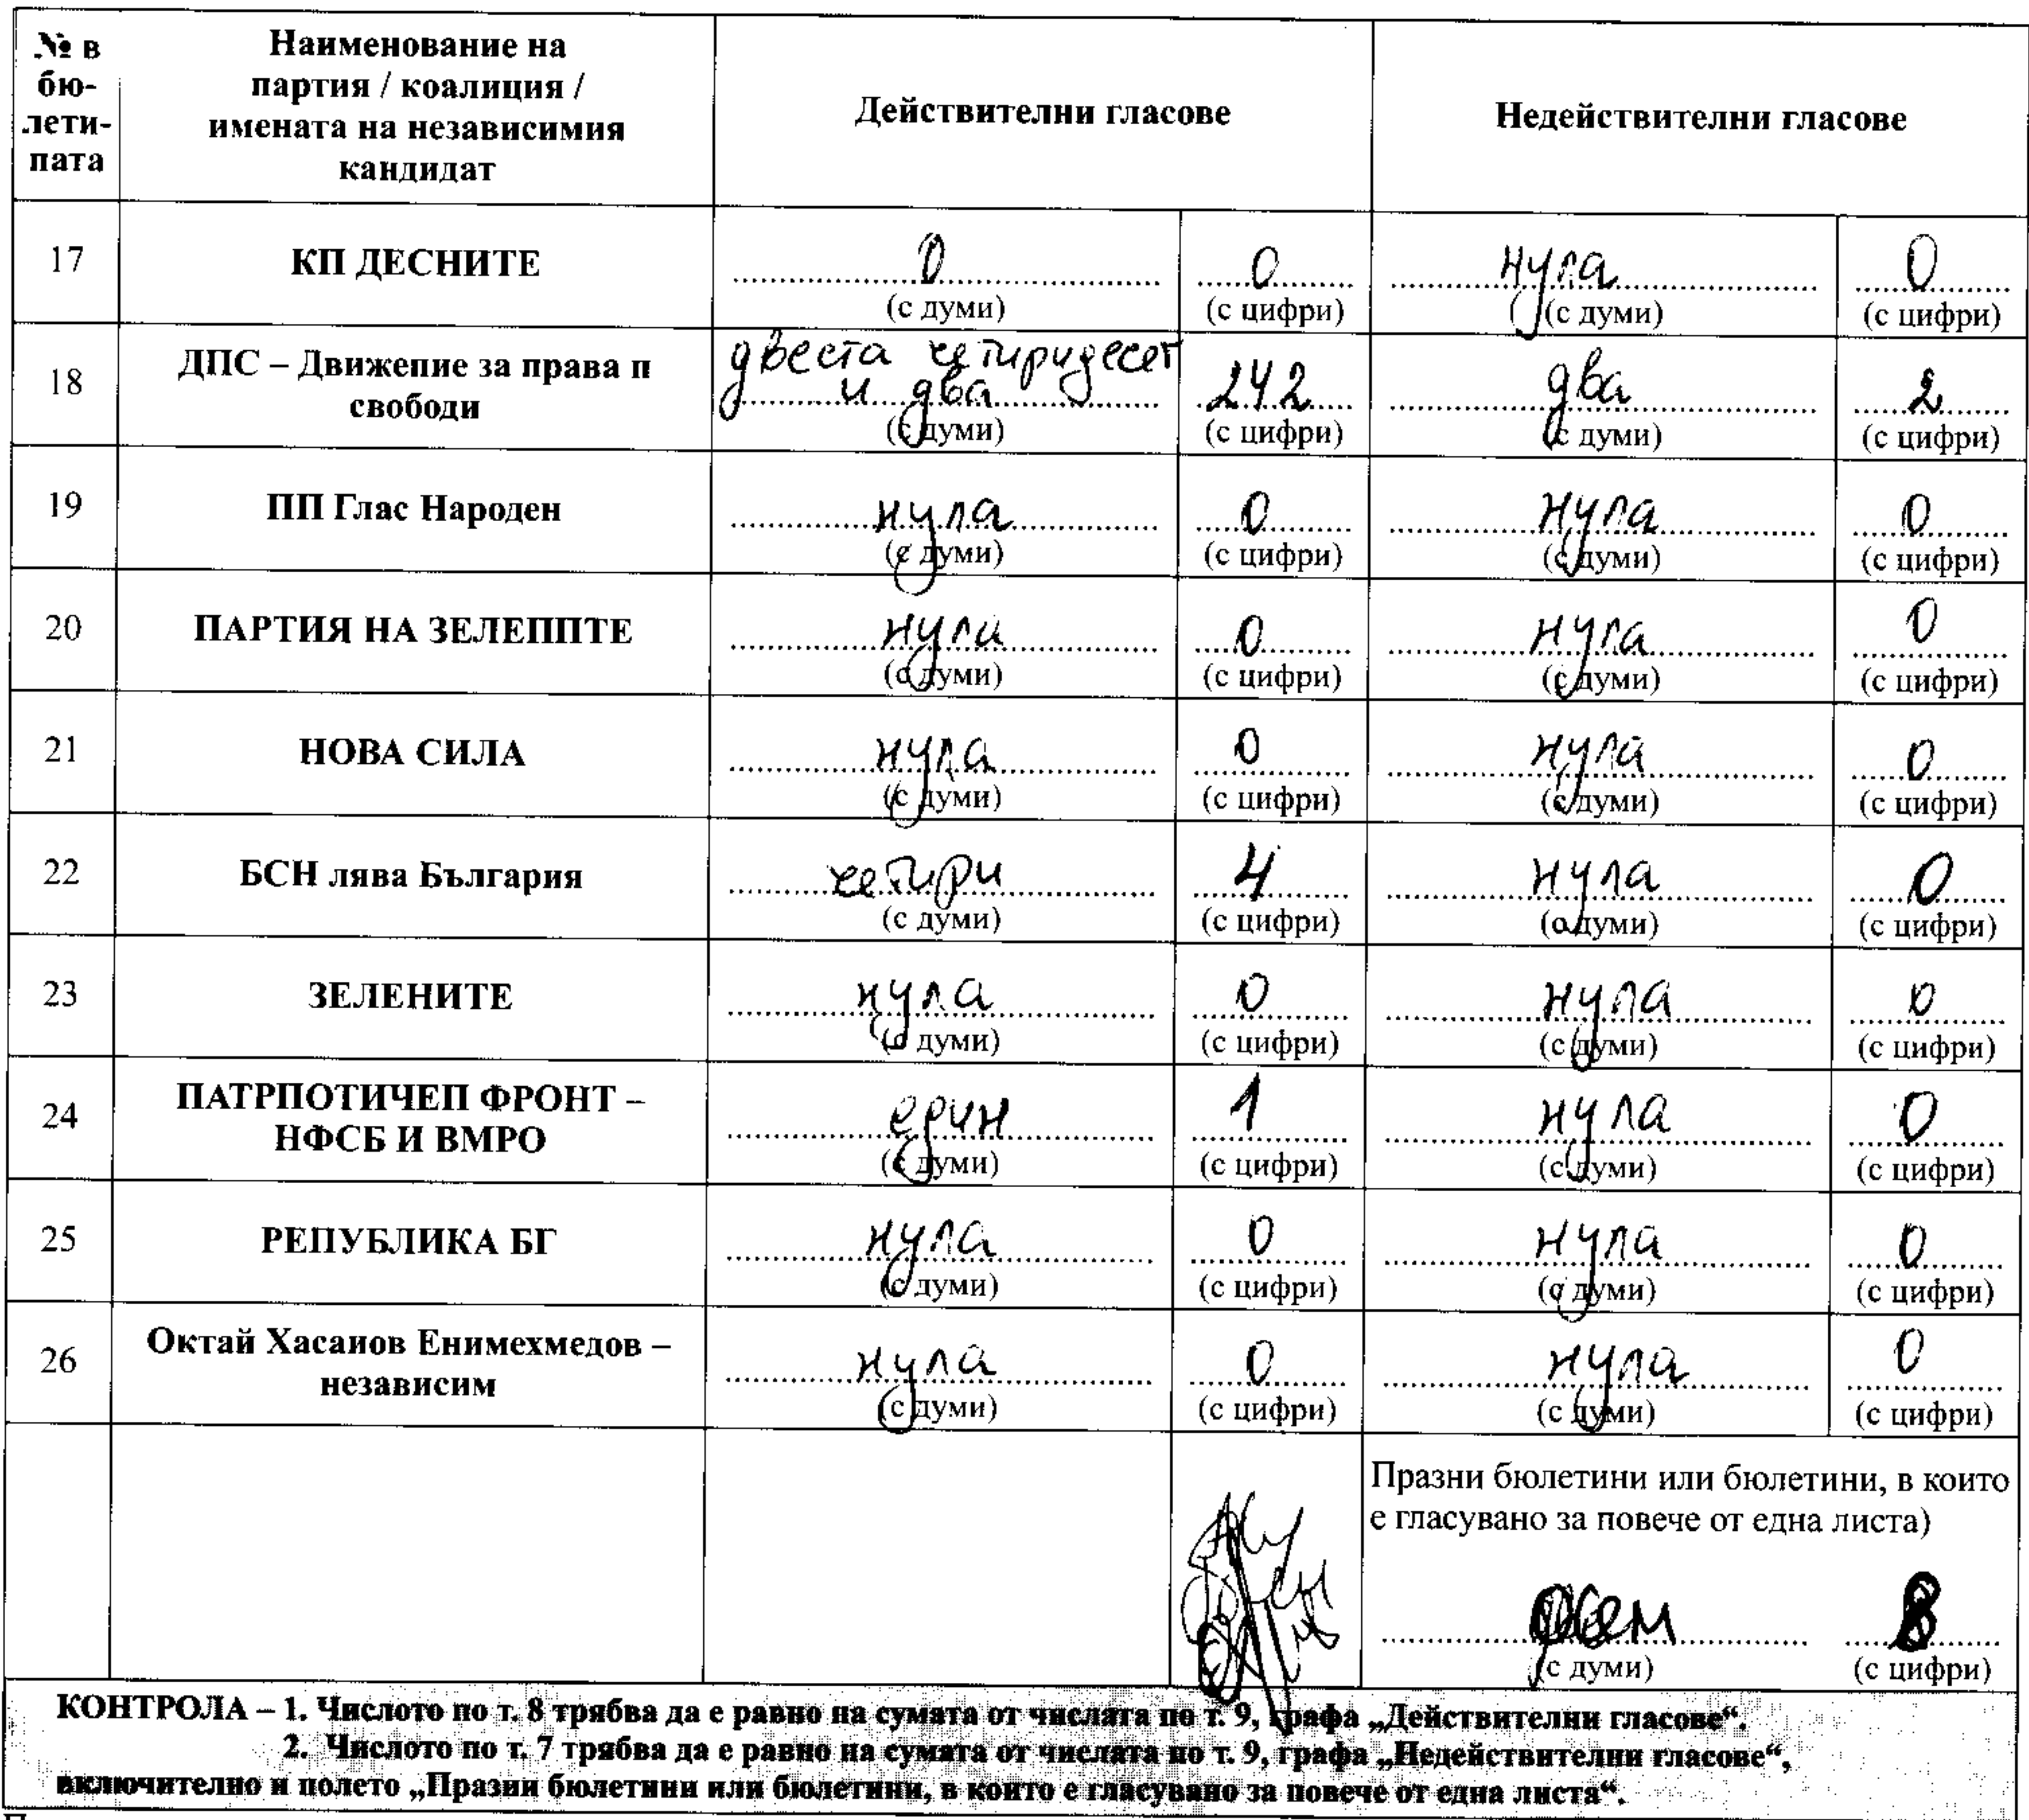 № в бю-лети-пата
Наименование на партия / коалиция / имената на независимия кандидат
Действителни гласове
Недействителни гласове
17 КП ДЕСНИТЕ 0 (с думи) 0 (с цифри) нула (с думи) 0 (с цифри)
18 ДПС – Движепие за права п свободи двеста четиридесет и два (с думи) 242 (с цифри) два (с думи) 2 (с цифри)
19 ПП Глас Народен нула (с думи) 0 (с цифри) нула (с думи) 0 (с цифри)
20 ПАРТИЯ НА ЗЕЛЕППТЕ нула (с думи) 0 (с цифри) нула (с думи) 0 (с цифри)
21 НОВА СИЛА нула (с думи) 0 (с цифри) нула (с думи) 0 (с цифри)
22 БСН лява България четири (с думи) 4 (с цифри) нула (с думи) 0 (с цифри)
23 ЗЕЛЕНИТЕ нула (с думи) 0 (с цифри) нула (с думи) 0 (с цифри)
24 ПАТРПОТИЧЕП ФРОНТ – НФСБ И ВМРО един (с думи) 1 (с цифри) нула (с думи) 0 (с цифри)
25 РЕПУБЛИКА БГ нула (с думи) 0 (с цифри) нула (с думи) 0 (с цифри)
26 Октай Хасанов Енимехмедов – независим нула (с думи) 0 (с цифри) нула (с думи) 0 (с цифри)
Празни бюлетини или бюлетини, в които
е гласувано за повече от една листа)
осем 8
(с думи) (с цифри)
КОНТРОЛА – 1. Числото по т. 8 трябва да е равно на сумата от числата по т. 9, графа „Действителни гласове“.
2. Числото по т. 7 трябва да е равно на сумата от числата по т. 9, графа „Недействителни гласове“,
включително и полето „Празни бюлетини или бюлетини, в които е гласувано за повече от една листа“.